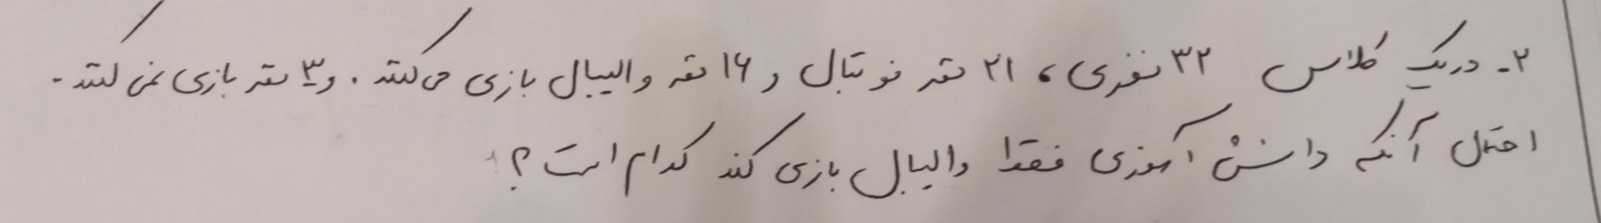 ۲- در یک کلاس ۳۲ نفری، ۲۱ نفر فوتبال و ۱۶ نفر والیبال بازی می کنند. و ۳ نفر بازی نمی کنند.
احتمال آنکه دانش آموزی فقط والیبال بازی کند کدام است؟